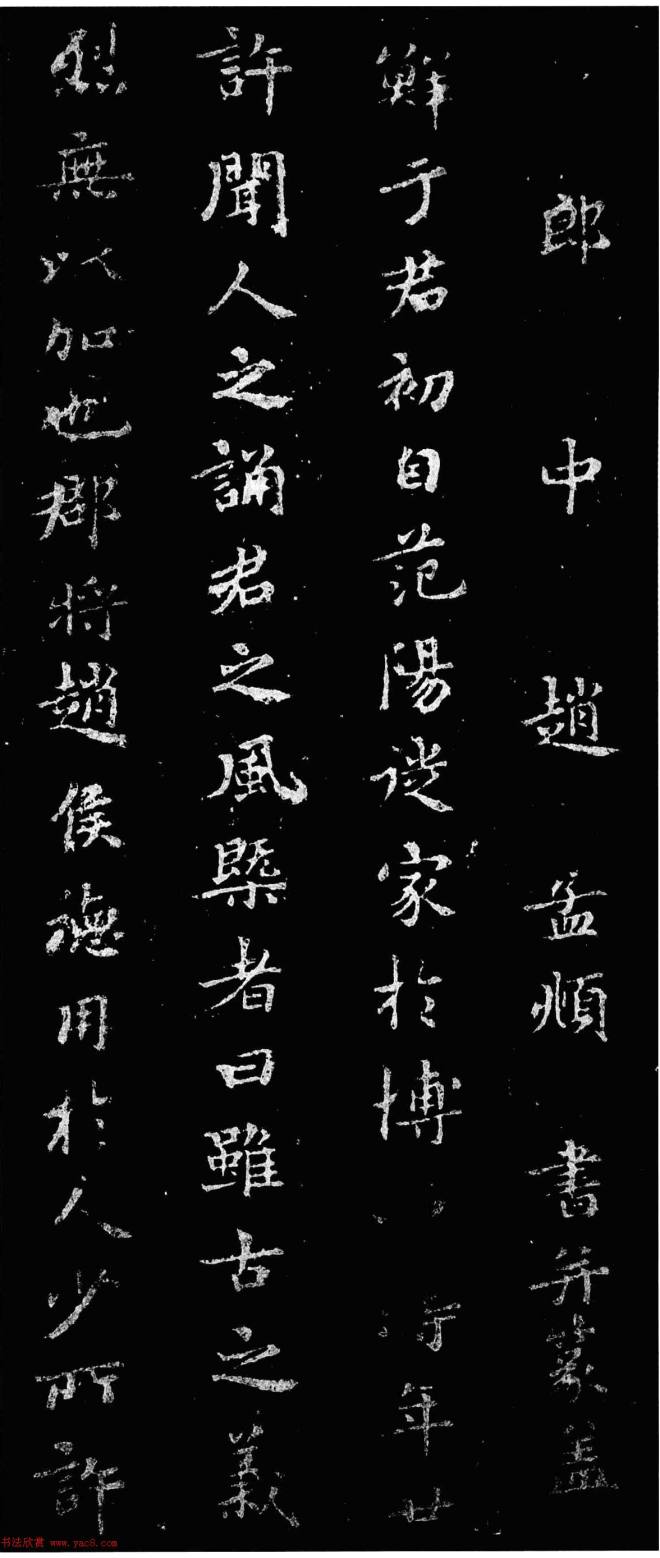 郎中趙孟頫書并篆盖
鮮于君初自范陽徙家於博 時年廿
許聞人之誦君之風槩者曰雖古之義
烈無以加也郡將趙侯德用於人少所許
书法欣赏 www.yac8.com